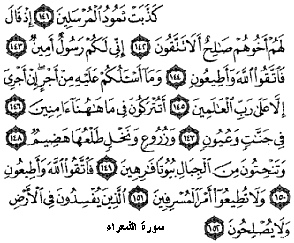 كَذَّبَتْ ثَمُودُ ٱلْمُرْسَلِينَ ١٤١ إِذْ قَالَ
لَهُمْ أَخُوهُمْ صَـٰلِحٌ أَلَا تَتَّقُونَ ١٤٢ إِنِّى لَكُمْ رَسُولٌ أَمِينٌ ١٤٣
فَٱتَّقُوا۟ ٱللَّهَ وَأَطِيعُونِ ١٤٤ وَمَآ أَسْـَٔلُكُمْ عَلَيْهِ مِنْ أَجْرٍ إِنْ أَجْرِىَ
إِلَّا عَلَىٰ رَبِّ ٱلْعَـٰلَمِينَ ١٤٥ أَتُتْرَكُونَ فِى مَا هَـٰهُنَآ ءَامِنِينَ ١٤٦
فِى جَنَّـٰتٍ وَعُيُونٍ ١٤٧ وَزُرُوعٍ وَنَخْلٍ طَلْعُهَا هَضِيمٌ ١٤٨
وَتَنْحِتُونَ مِنَ ٱلْجِبَالِ بُيُوتًا فَـٰرِهِينَ ١٤٩ فَٱتَّقُوا۟ ٱللَّهَ وَأَطِيعُونِ
١٥٠ وَلَا تُطِيعُوٓا۟ أَمْرَ ٱلْمُسْرِفِينَ ١٥١ ٱلَّذِينَ يُفْسِدُونَ فِى ٱلْأَرْضِ
وَلَا يُصْلِحُونَ ١٥٢
سورة الشعراء